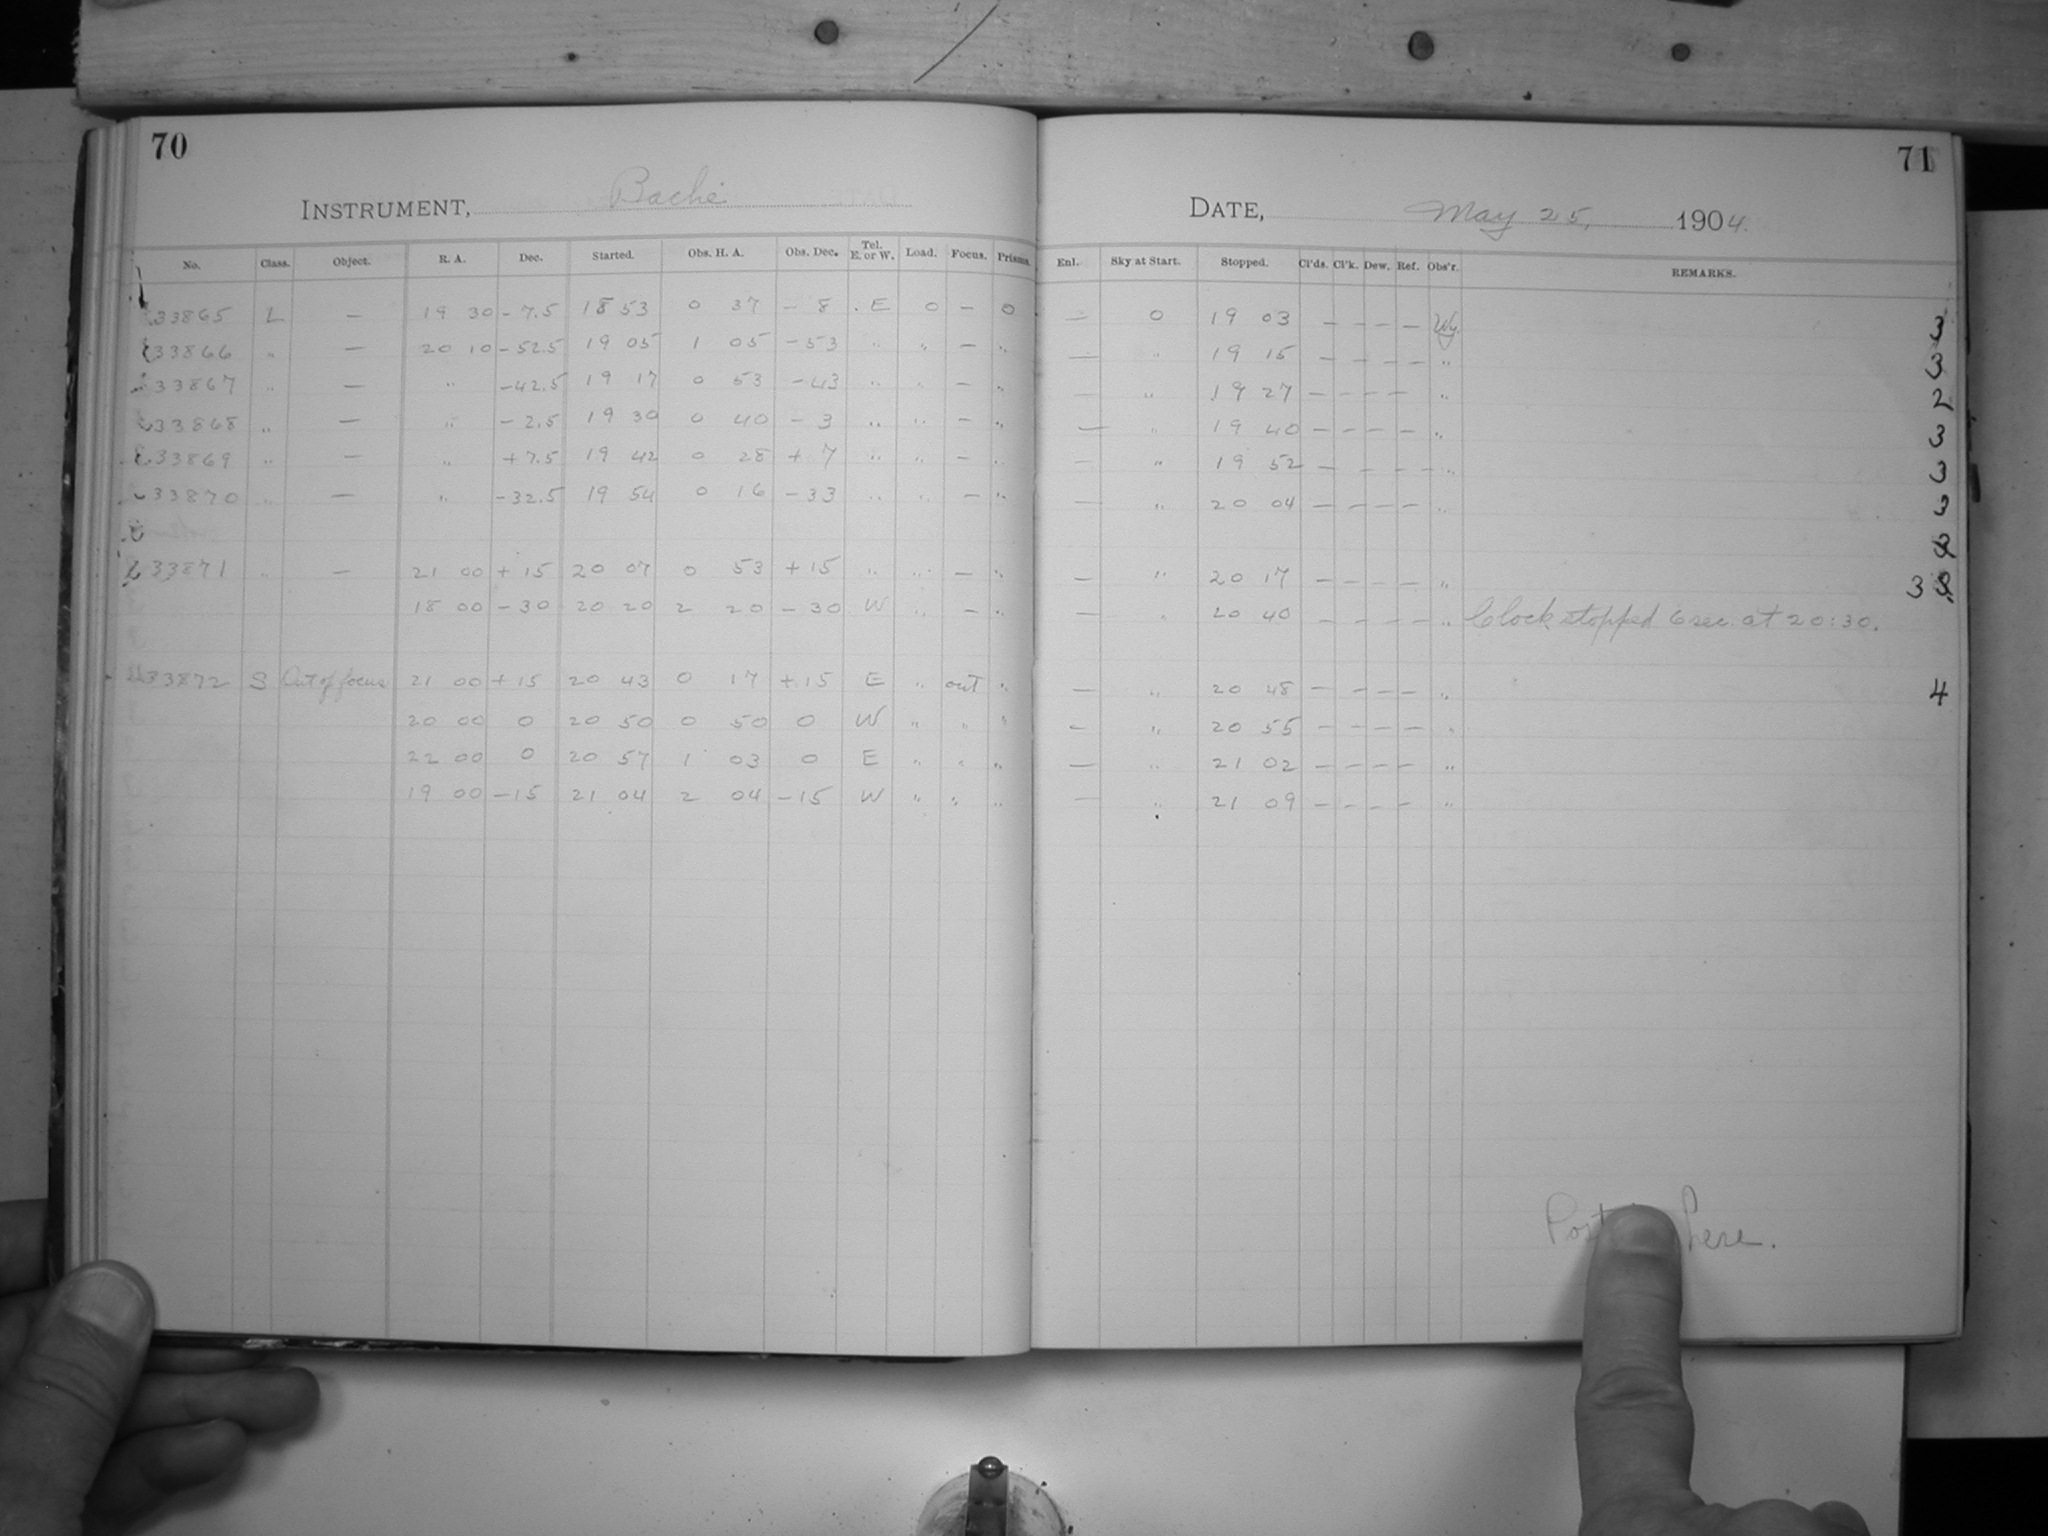 70
INSTRUMENT, Bache
No. Class. Object. R. A. Dec. Started. Obs. H. A. Obs. Dec. Tel. E. or W. Load. Focus. Prisms.
33865 L — 19 30 - 7.5 18 53 0 37 - 8 E 0 — 0
33866 " — 20 10 - 52.5 19 05 1 05 - 53 " " — "
33867 " — " - 42.5 19 17 0 53 - 43 " " — "
33868 " — " - 2.5 19 30 0 40 - 3 " " — "
33869 " — " + 7.5 19 42 0 28 + 7 " " — "
33870 " — " - 32.5 19 54 0 16 - 33 " " — "
33871 " — 21 00 + 15 20 07 0 53 + 15 " " — "
18 00 - 30 20 20 2 20 - 30 W " — "
33872 S Out of focus 21 00 + 15 20 43 0 17 + 15 E " out "
20 00 0 20 50 0 50 0 W " " "
22 00 0 20 57 1 03 0 E " " "
19 00 - 15 21 04 2 04 - 15 W " " "
71
DATE, May 25, 1904.
Enl. Sky at Start. Stopped. Cl'ds. Cl'k. Dew. Ref. Obs'r. REMARKS.
— 0 19 03 — — — — Wy. 3
— " 19 15 — — — — " 3
— " 19 27 — — — — " 2
— " 19 40 — — — — " 3
— " 19 52 — — — — " 3
— " 20 04 — — — — " 3
— " 20 17 — — — — " 3
— " 20 40 — — — — " Clock stopped 6 sec. at 20:30.
— " 20 48 — — — — " 4
— " 20 55 — — — — "
— " 21 02 — — — — "
— " 21 09 — — — — "
here.